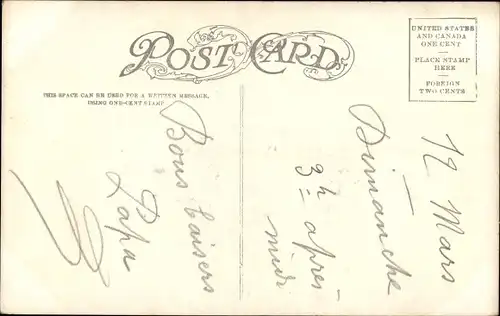 POST CARD
UNITED STATES
AND CANADA
ONE CENT
PLACE STAMP
HERE
FOREIGN
TWO CENTS
THIS SPACE CAN BE USED FOR A WRITTEN MESSAGE,
USING ONE-CENT STAMP
12 Mars
Dimanche
3h après
midi
Bons baisers
Papa